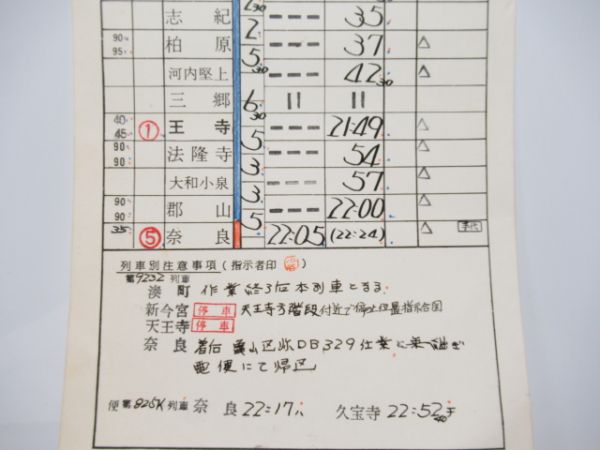 30
志紀 2 --- 35
90 95 柏原 5 --- 37 △
河内堅上 30 --- 42 30 △
三郷 6 = =
40 45 ① 王寺 30 5 --- 21:49 △
90 90 法隆寺 3 --- 54 △
大和小泉 3 --- 57 △
90 90 郡山 5 --- 22:00 △
35 ⑤ 奈良 22:05 (22:24) △
列車別注意事項(指示者印 )
第9232列車
湊町 作業終了后本列車とする
新今宮 停車 天王寺方階段付近で停止位置指示合図
天王寺 停車
奈良 着后 DB329仕業に乗継ぎ
電便にて帰区
便 第826K列車 奈良 22:17 久宝寺 22:52